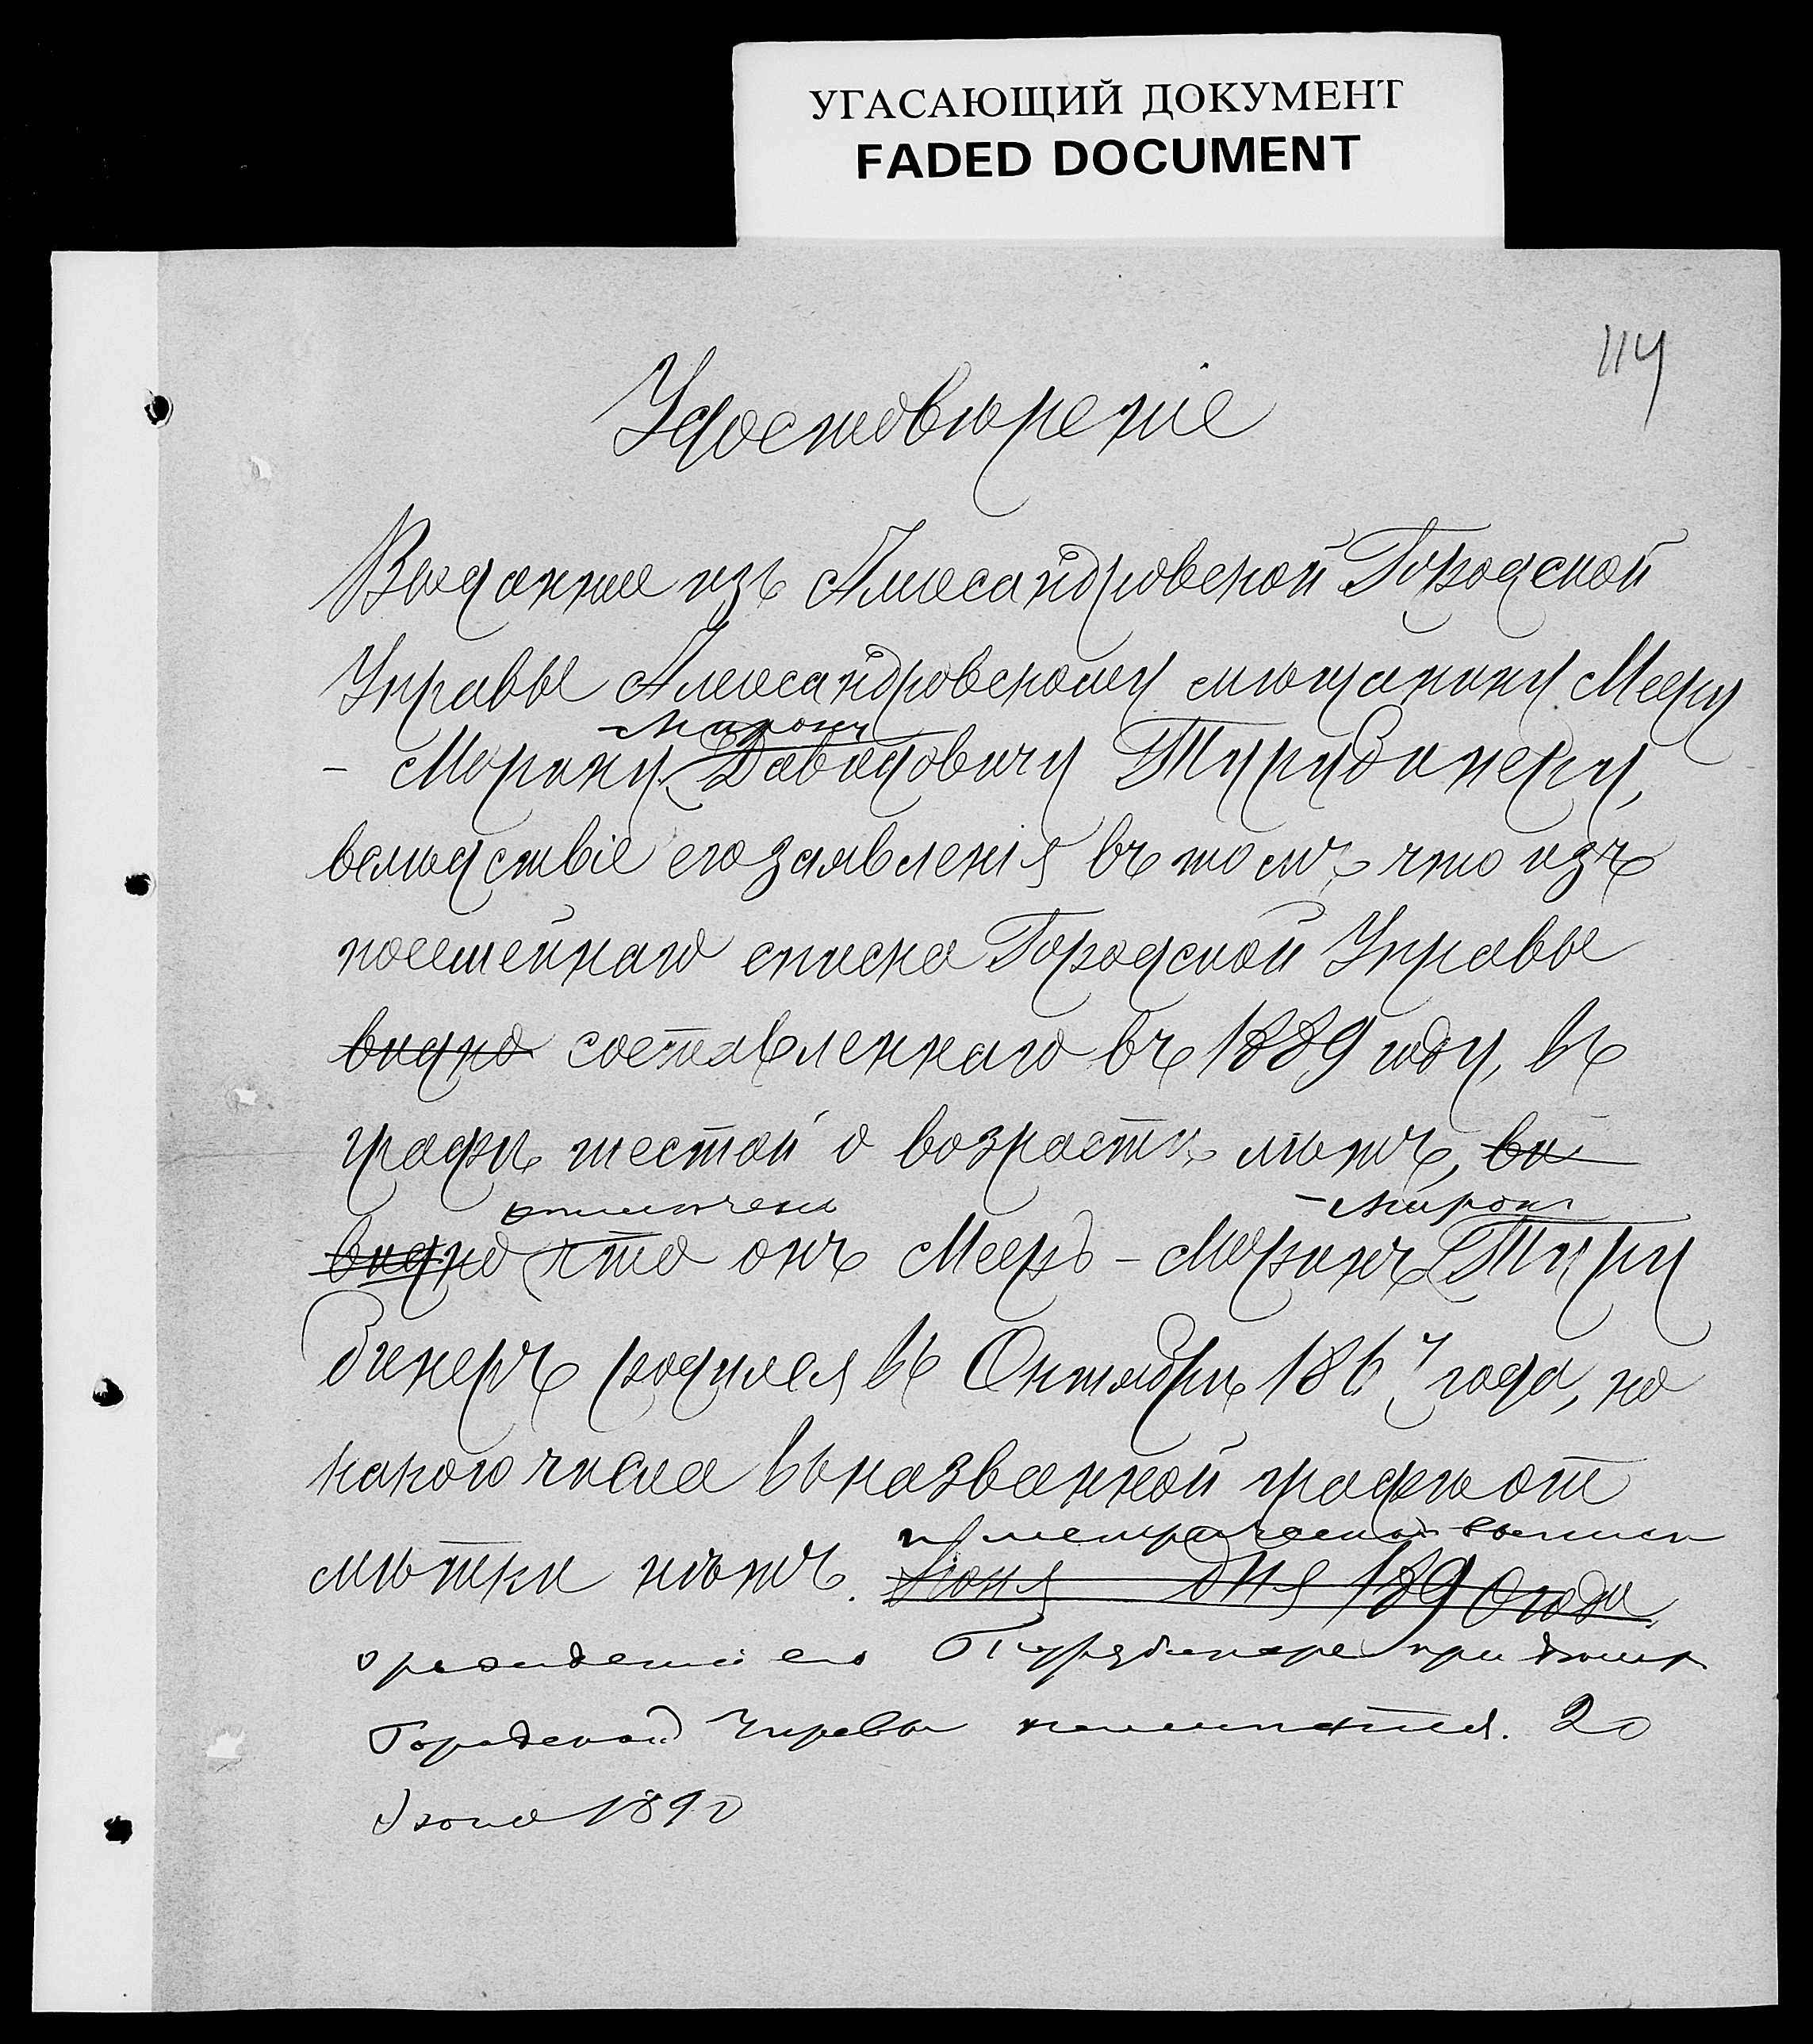 УГАСАЮЩИЙ ДОКУМЕНТ
FADED DOCUMENT
114
Удостовѣреніе
Выданное изъ Александровской Городской
Управы Александровскому мѣщанину Мееру
- Мирону
- Морину Давидовичу Турубинеру,
вслѣдствіе его заявленія въ томъ, что изъ
посемейнаго списка Городской Управы
видно составленнаго въ 1889 году, въ
графѣ шестой о возрастѣ лѣтъ, ви
отмѣчено - Миронъ
видно что онъ Мееръ - Моринъ Туру
бинеръ родился въ Октябрѣ 1867 года, но
какого числа въ названной графѣ от
мѣтки нѣтъ. Іюня дня 1890 года.
и метрической выписи
о рожденіи его Турубинера при дѣлахъ
Городской Управы не имѣется. 20
Іюня 1890